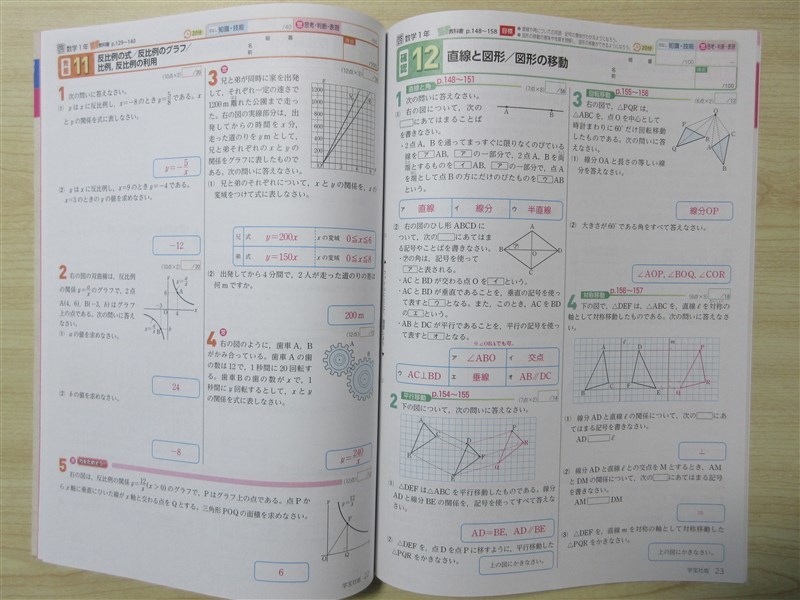 数学1年
教科書 p.129~140
知識・技能
思考・判断・表現
11 反比例の式/反比例のグラフ/
比例, 反比例の利用
1 次の問いに答えなさい。
① yはxに反比例し、x=-8のときy=5/8である。x
とyの関係を式に表しなさい。
y=-5/x
② yはxに反比例し、x=9のときy=-4である。
x=3のときのyの値を求めなさい。
-12
2 右の図の双曲線は、反比例
上の点である。次の問いに答え
なさい。
① aの値を求めなさい。
24
② bの値を求めなさい。
-8
3 兄と弟が同時に家を出発
して、それぞれ一定の速さで
1200m離れた公園まで走っ
た。右の図の実線部分は、出
発してからの時間をx分、
走った道のりをymとして、
兄と弟それぞれのxとyの
関係をグラフに表したもので
ある。次の問いに答えなさい。
① 兄と弟のそれぞれについて、xとyの関係を、xの
変域をつけて式に表しなさい。
兄 式 y=200x xの変域 0≦x≦6
弟 式 y=150x xの変域 0≦x≦8
② 出発してから4分間で、2人が走った道のりの差は
何mですか。
200m
4 右の図のように、歯車A、B
がかみ合っている。歯車Aの歯
の数は12で、1秒間に20回転す
る。歯車Bの歯の数がxで、1
秒間にy回転するとして、xとy
の関係を式に表しなさい。
y=240/x
5
右の図は、反比例の関係y=12/x(x>0)のグラフで、Pはグラフ上の点である。点Pか
らx軸に垂直にひいた線がx軸と交わる点をQとする。三角形POQの面積を求めなさい。
6
数学1年
教科書 p.148~158
目標
知識・技能
思考・判断・表現
確認 12 直線と図形/図形の移動
1 直線と角 p.148~151
次の問いに答えなさい。
① 右の図について、次の
にあてはまることば
を書きなさい。
・2点A、Bを通ってまっすぐに限りなくのびている
線をア AB、アの一部分で、2点A、Bを両
端とするものをイ AB、アの一部分で、点A
を端として点Bの方にだけのびたものをウ AB
という。
ア 直線 イ 線分 ウ 半直線
② 右の図のひし形ABCDに
ついて、次の にあてはま
る記号やことばを書きなさい。
・㋐の角は、記号を使って
アと表される。
・ACとBDが交わる点Oをイという。
・ACとBDが垂直であることを、垂直の記号を使っ
て表すとウとなる。また、このとき、ACをBD
のエという。
・ABとDCが平行であることを、平行の記号を使っ
て表すとオとなる。
ア ∠ABO イ 交点
ウ AC⊥BD エ 垂線 オ AB∥DC
2 平行移動 p.154~155
下の図について、次の問いに答えなさい。
① △DEFは△ABCを平行移動したものである。線分
ADと線分BEの関係を、記号を使ってすべて答えな
さい。
AD=BE, AD∥BE
② △DEFを、点Dを点Pに移すように、平行移動した
△PQRをかきなさい。
上の図にかきなさい。
3 回転移動 p.155~156
右の図で、△PQRは、
△ABCを、点Oを中心として
時計まわりに60°だけ回転移動
したものである。次の問いに
答えなさい。
① 線分OAと長さの等しい線
分を答えなさい。
線分OP
② 大きさが60°である角をすべて答えなさい。
∠AOP, ∠BOQ, ∠COR
4 対称移動 p.156~157
下の図で、△DEFは、△ABCを、直線ℓを対称の
軸として対称移動したものである。次の問いに答えな
さい。
① 線分ADと直線ℓの関係について、次の に
あてはまる記号を書きなさい。
AD ℓ
⊥
② 線分ADと直線ℓとの交点をMとするとき、AM
とDMの関係について、次の にあてはまる記号
を書きなさい。
AM DM
=
③ △DEFを、直線mを対称の軸として対称移動した
△PQRをかきなさい。
上の図にかきなさい。
学宝社版 23